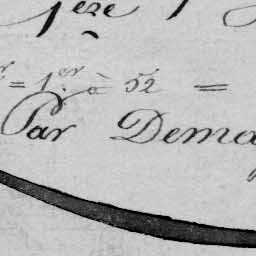 1ere
= 1er à 52 =
Par Dema